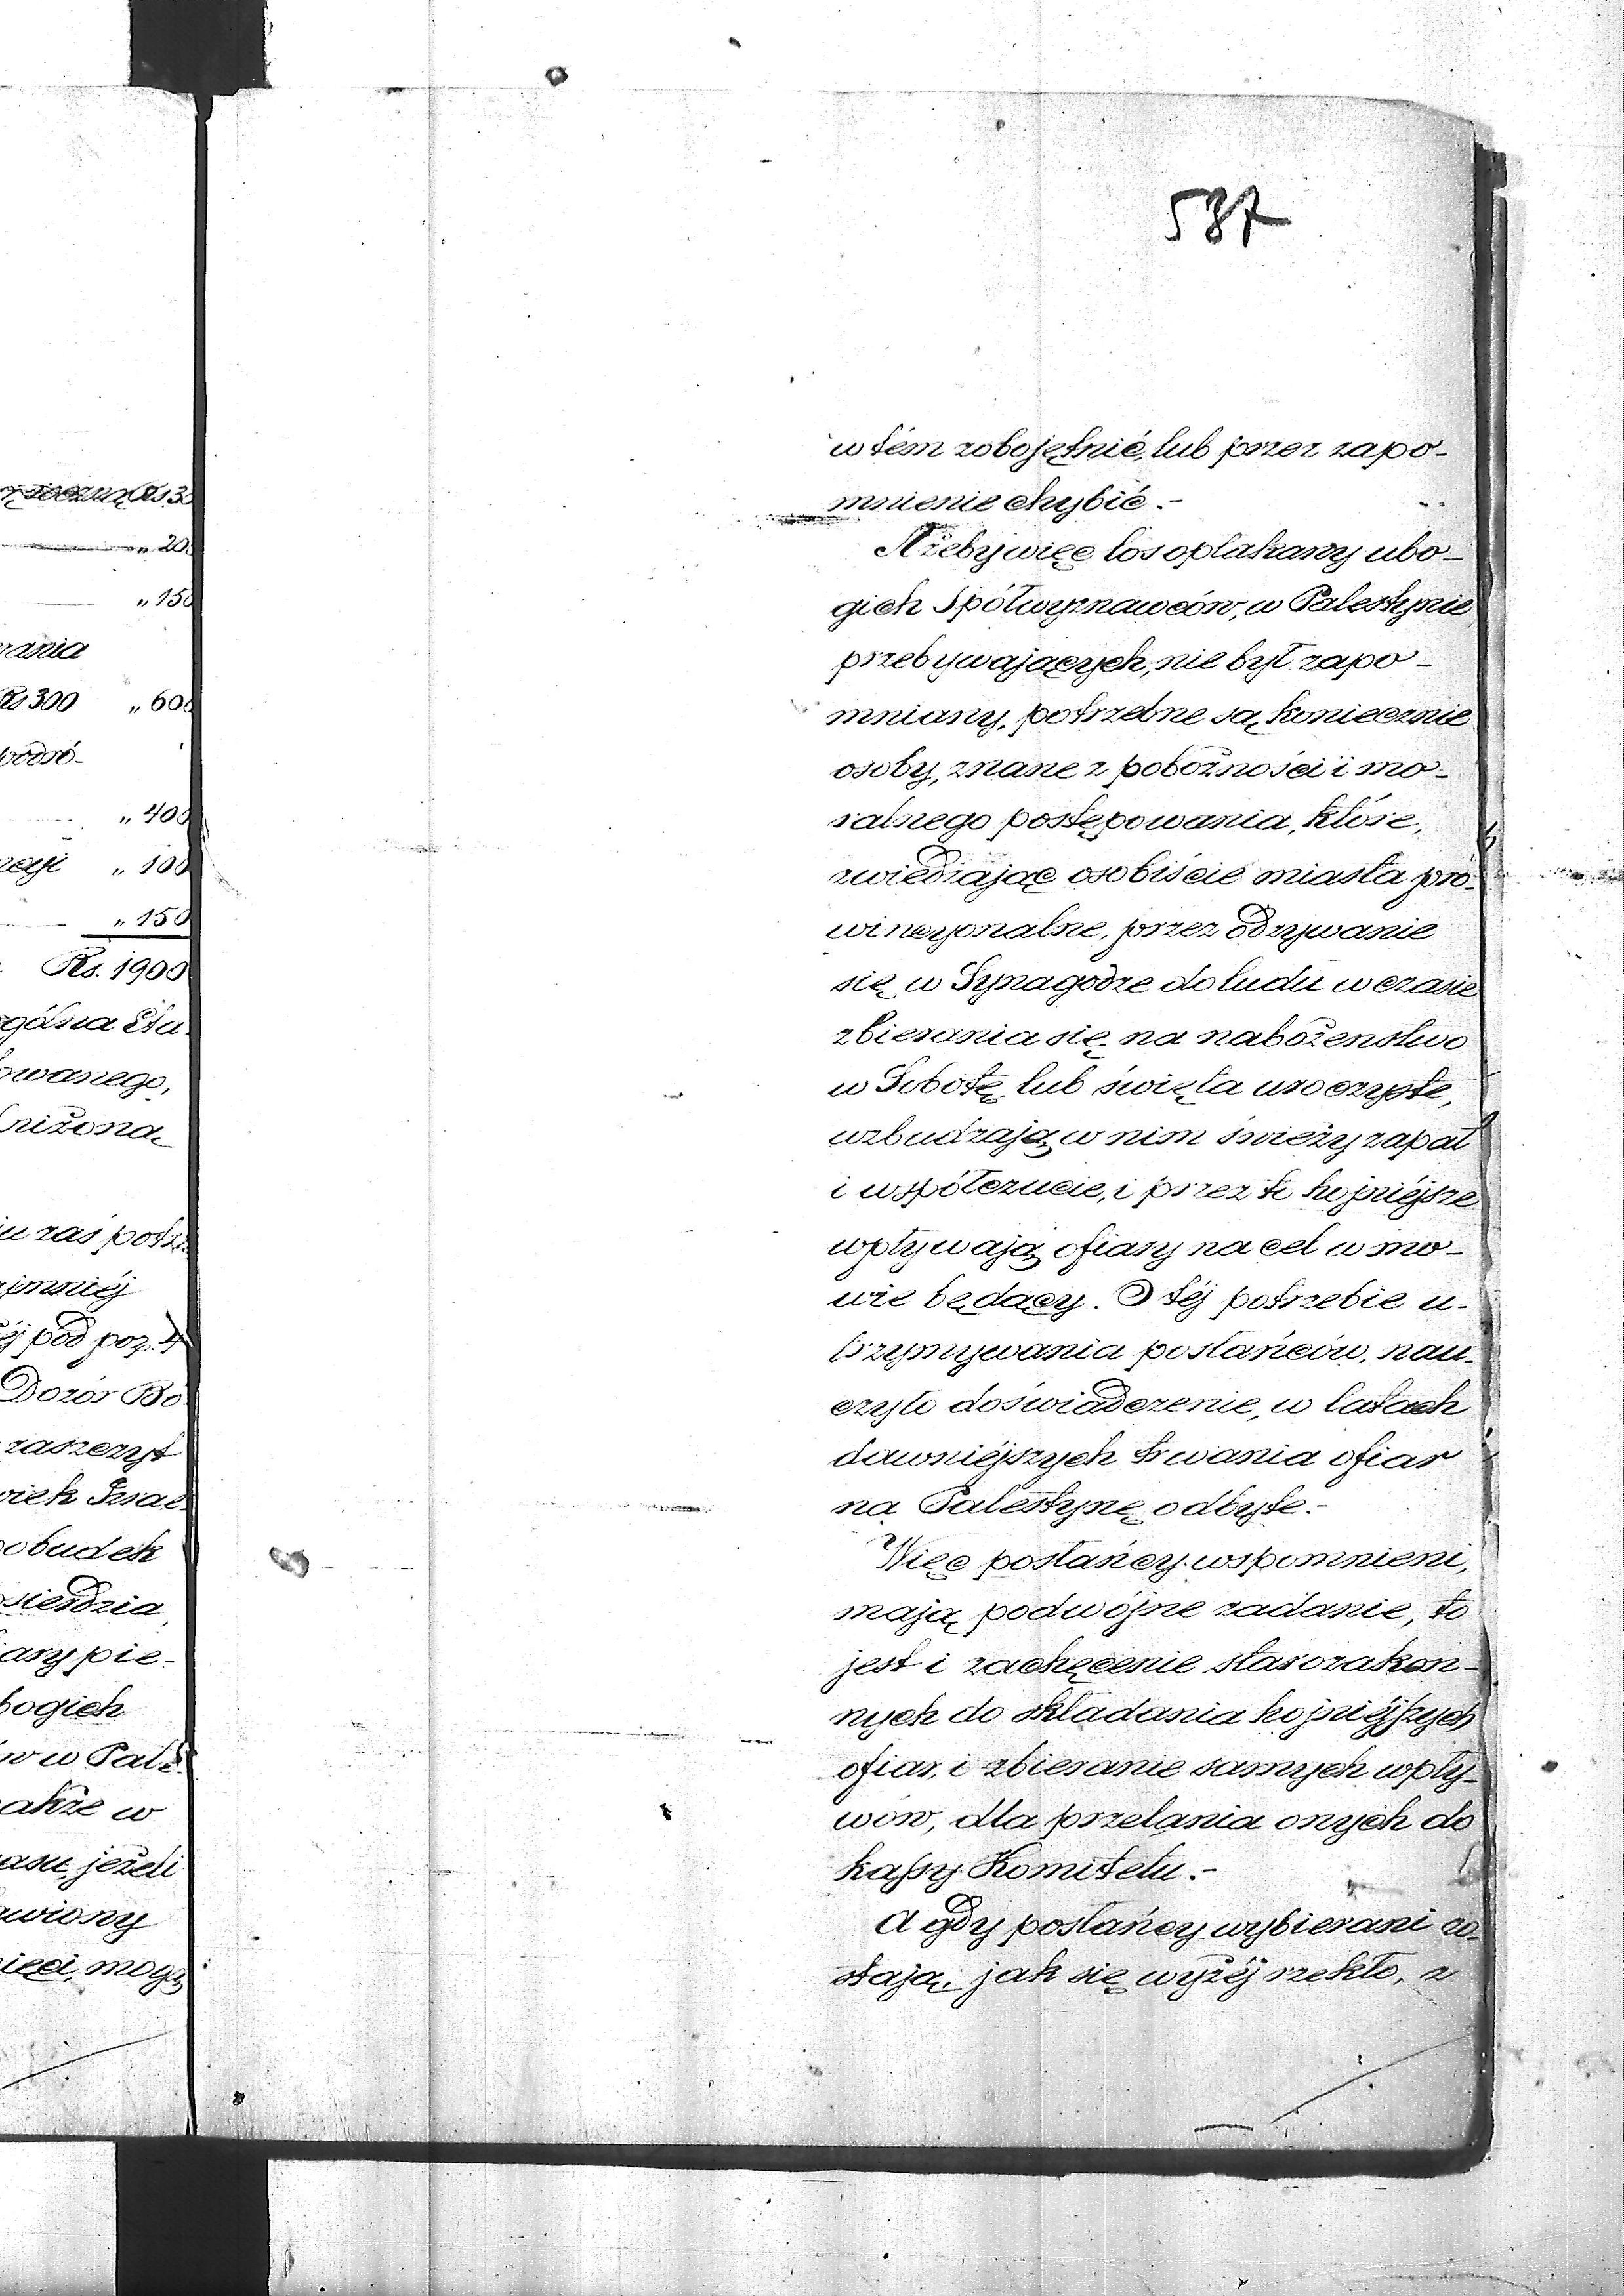 587
w tém zobojętnić, lub przez zapo-
mnienie chybić.-
Ażeby więc los opłakany ubo-
gich Spółwyznawców, w Palestynie
przebywających, nie był zapo-
mniany, potrzebne są koniecznie
osoby, znane z pobożności i mo-
ralnego postępowania, które,
zwiedzając osobiście miasta pro-
wincyonalne, przez odzywanie
się w Synagodze do ludu w czasie
zbierania się na nabożenstwo
w Sobotę lub święta uroczyste,
wzbudzają w nim świeży zapał
i współczucie, i przez to hojniéjsze
wpływają ofiary na cel w mo-
wie będący. O téj potrzebie u-
trzymywania posłańców, nau-
czyło doświadczenie, w latach
dawniéjszych trwania ofiar
na Palestynę odbyte.-
Więc posłańcy wspomnieni,
mają podwójne zadanie, to
jest i zachęcenie starozakon-
nych do składania hojniéjszych
ofiar, i zbieranie samych wpły-
wów, dla przelania onych do
kassy Komitetu.-
A gdy posłańcy wybierani zo-
stają, jak się wyżéj rzekło, z
20
" 150
rania
Rs 300 " 600
wodró-
" 400
" 100
" 150
Rs. 1900
gólna Eta
owanego,
niżoną
zaś potrz
jmniéj
éj pod poz. 4
Dozór Bó
zaszczyt
wiek Izrae
obudek
sierdzia,
ary pie-
bogich
w w Pale
akże w
asu, jeżeli
wiony
ięci, mogą